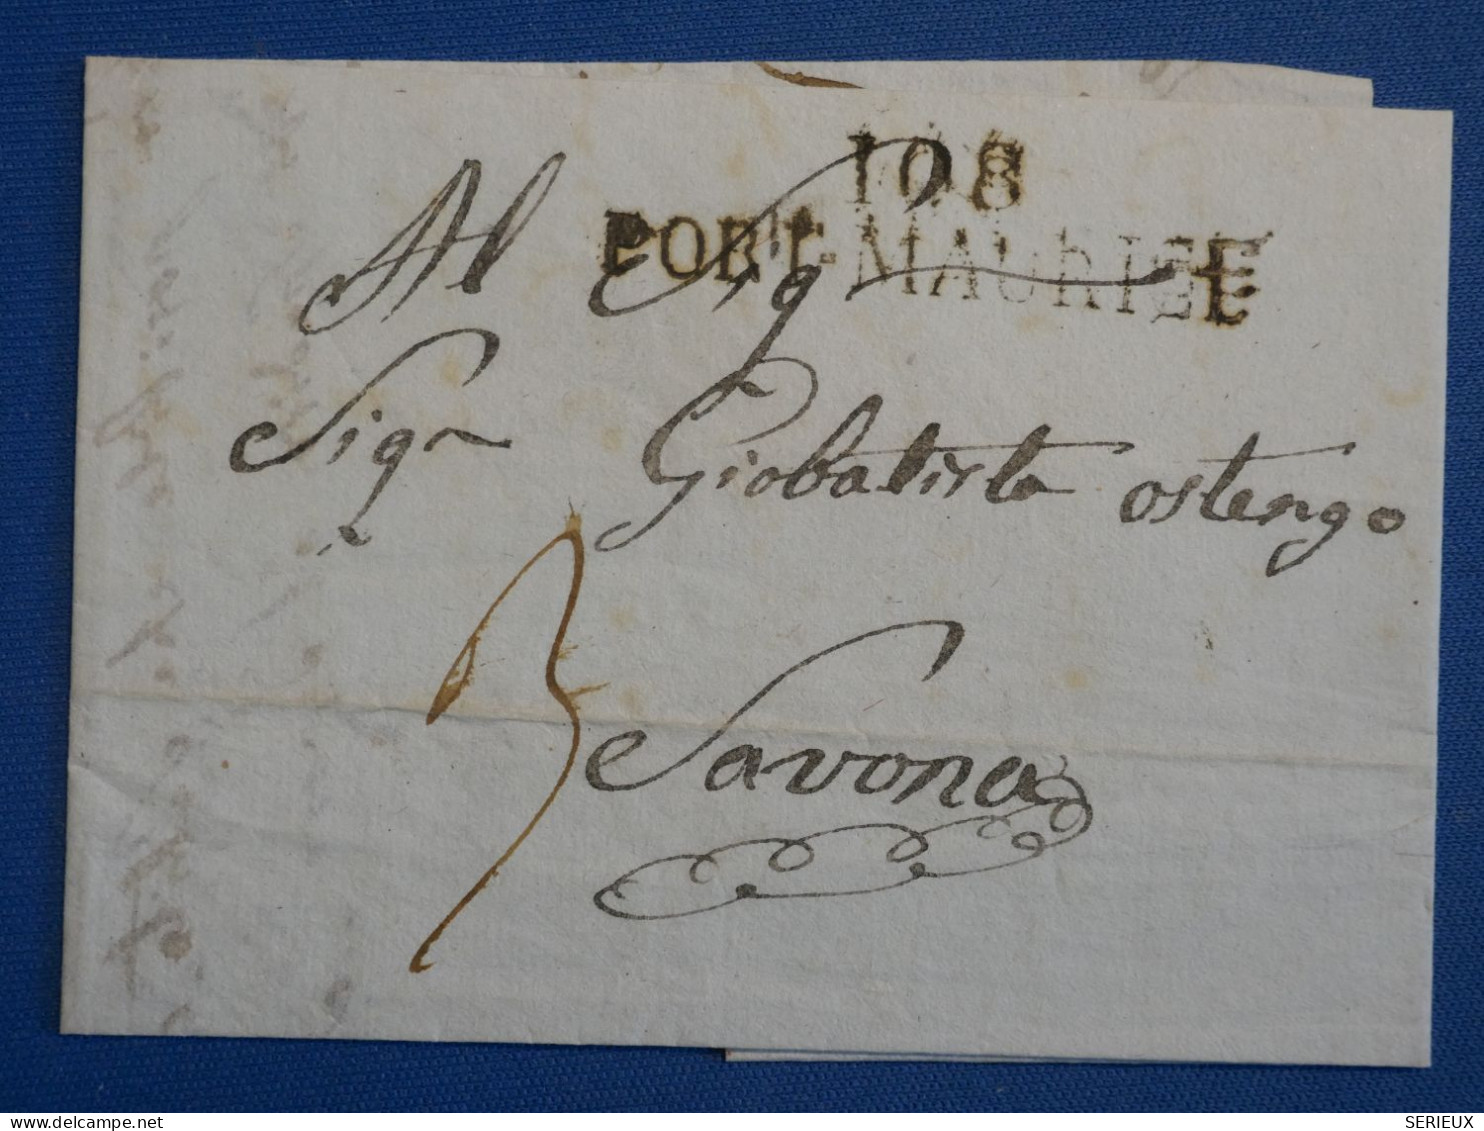 108
PORT-MAURICE
Al Sig
Sigr Giobatista ostengo
3
Savona
SERIEUX
delcampe.net